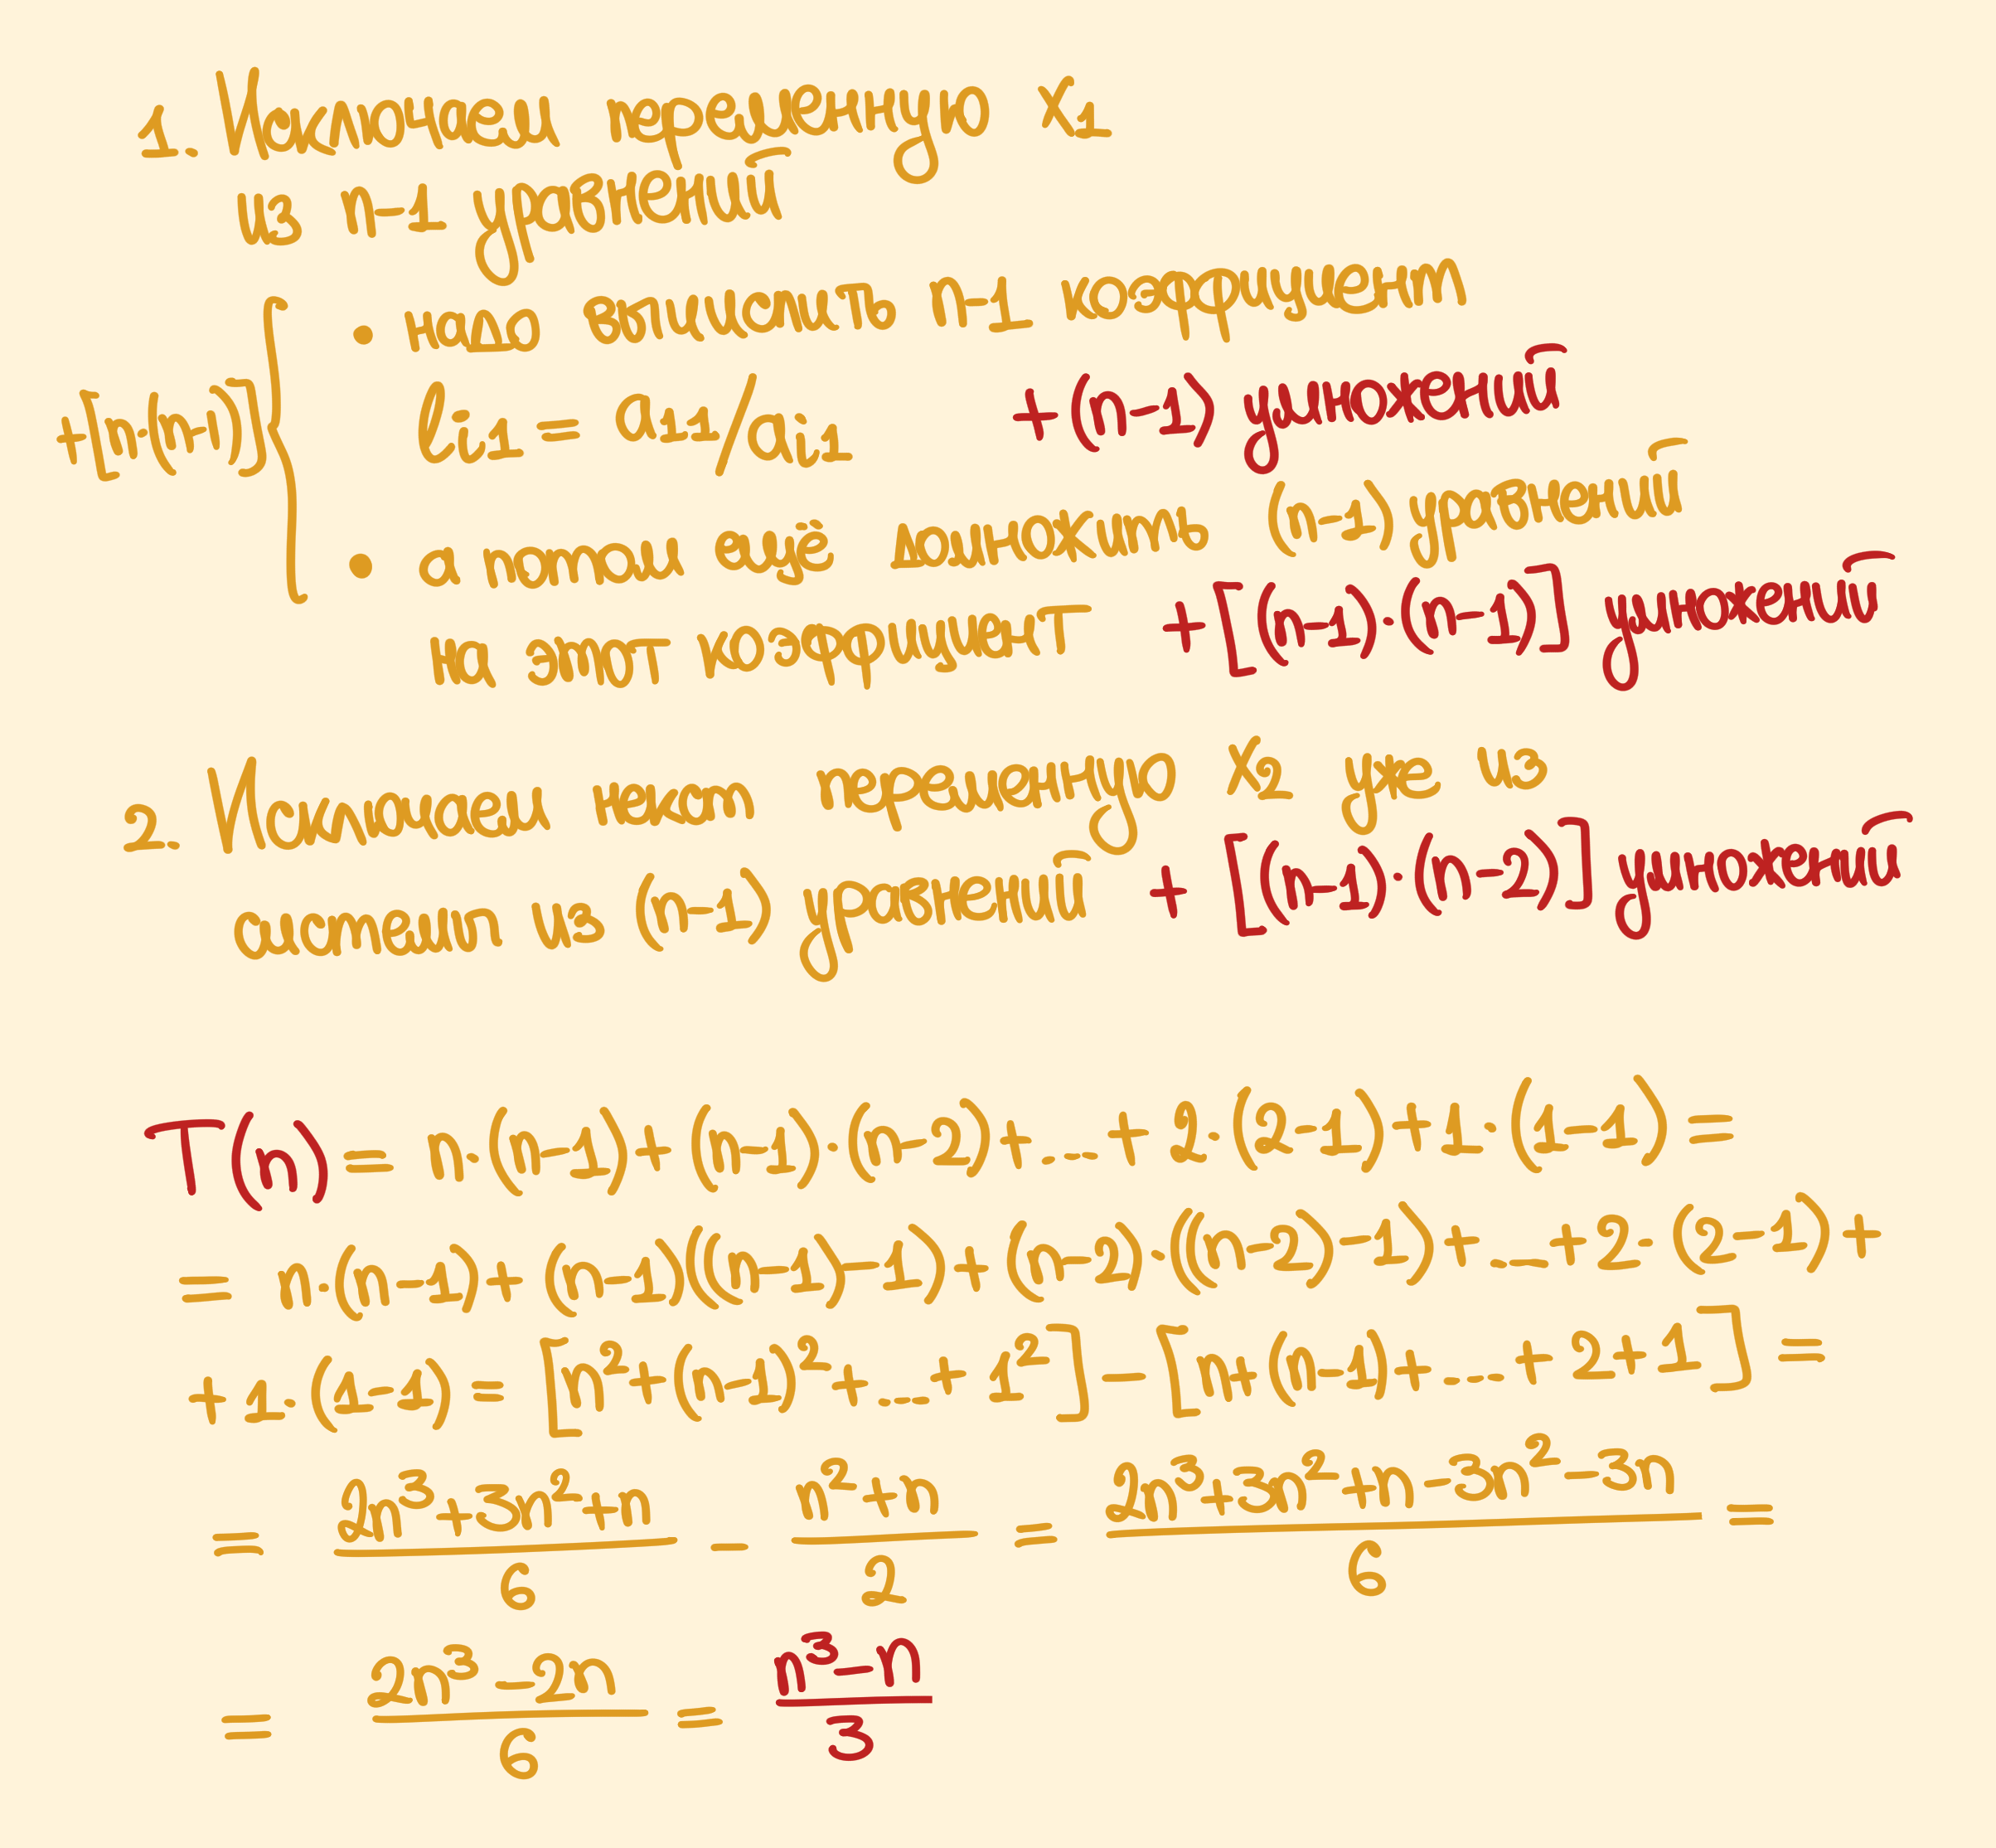 1. Исключаем переменную x₁
из n-1 уравнений
• надо вычислить n-1 коэффициент
+[n·(n-1)] lᵢ₁ = a₁₁/aᵢ₁ +(n-1) умножений
• а потом ещё домножить (n-1) уравнений
на этот коэффициент +[(n-1)·(n-1)] умножений
2. Исключаем некст переменную x₂ уже из
оставш из (n-1) уравнений + [(n-1)·(n-2)] умножений
T(n) = n·(n-1)+(n-1)·(n-2)+...+2·(2-1)+1·(1-1) =
= n·(n-1)+(n-1)((n-1)-1)+(n-2)·((n-2)-1)+...+2·(2-1)+
+1·(1-1) = [n²+(n-1)²+...+1²]-[n+(n-1)+...+2+1] =
= (2n³+3n²+n)/6 - (n²+n)/2 = (2n³+3n²+n-3n²-3n)/6 =
= (2n³-2n)/6 = (n³-n)/3